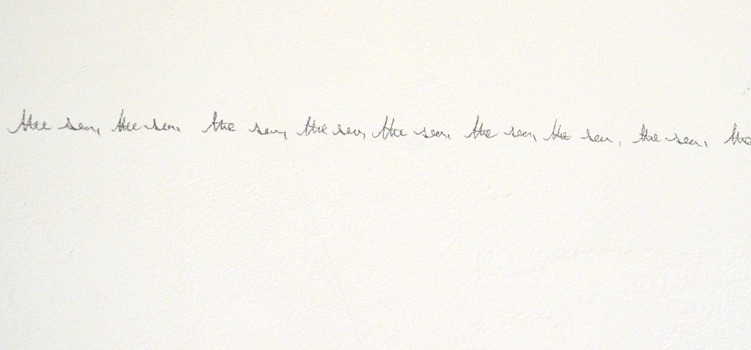 the sea, the sea, the sea, the sea, the sea, the sea, the sea, the sea, the